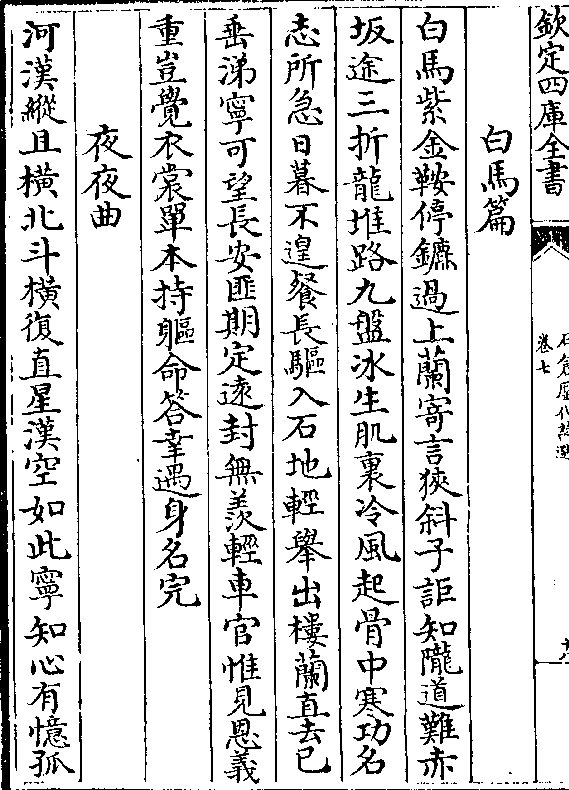 欽定四庫全書
石倉歷代詩選
卷七
白馬篇
白馬紫金鞍停鑣過上蘭寄言狹斜子詎知隴道難赤
坂途三折龍堆路九盤冰生肌裏冷風起骨中寒功名
志所急日暮不遑餐長驅入石地輕舉出樓蘭直去已
垂涕寧可望長安匪期定遠封無羨輕車官惟見恩義
重豈覺衣裳單本持軀命答幸遇身名完
夜夜曲
河漢縱且橫北斗橫復直星漢空如此寧知心有憶孤